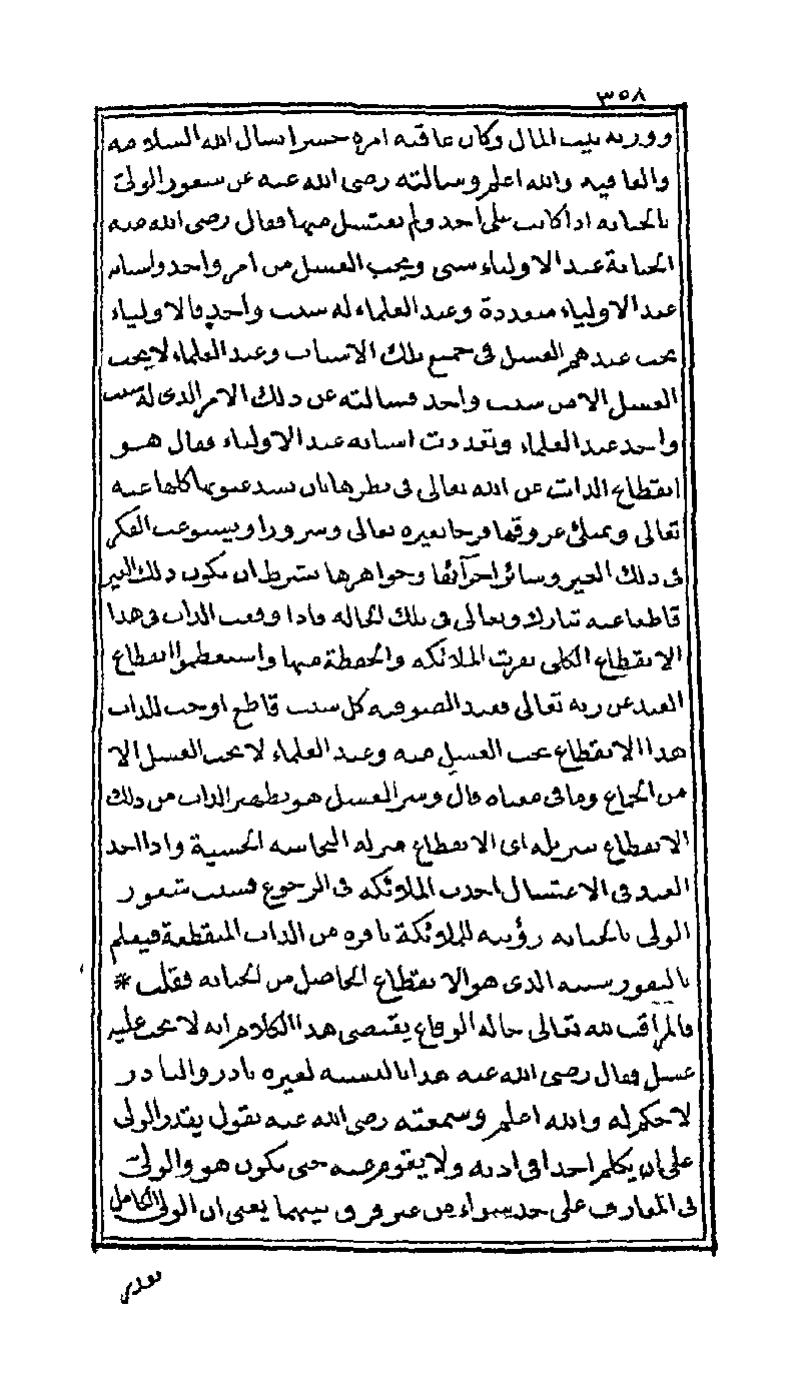 ٣٥٨
وورثه بيت المال وكان عاقبة امره خسرا نسال الله السلامة
والعافية والله اعلم وسالته رضى الله عنه عن شعور الولى
بالجنابة اذا كانت على احد ولم يغتسل منها فقال رضى الله عنه
الجنابة عند الاولياء شىء ويجب الغسل من امر واحد واسبابه
عند الاولياء متعددة وعند العلماء له سبب واحد فالاولياء
يجب عندهم الغسل فى جميع تلك الاسباب وعند العلماء لا يجب
الغسل الا من سبب واحد فسالته عن ذلك الامر الذى له سبب
واحد عند العلماء وتعددت اسبابه عند الاولياء فقال هو
انقطاع الذات عن الله تعالى فى نظرها بان تسد عيونها كلها عنه
تعالى وتمتلئ عروقها فرحا بغيره تعالى وسرورا ويستوعب الفكر
فى ذلك الغير وسائر اجزائها وجواهرها بشرط ان يكون ذلك الغير
قاطعا عنه تبارك وتعالى فى تلك الحالة فاذا وقعت الذات فى هذا
الانقطاع الكلى نفرت الملائكة والحفظة منها واستعظموا انقطاع
العبد عن ربه تعالى فعند الصوفية كل سبب قاطع اوجب للذات
هذا الانقطاع يجب الغسل منه وعند العلماء لا يجب الغسل الا
من الجماع وما فى معناه قال وسر الغسل هو تطهير الذات من ذلك
الانقطاع بتنزيله اى الانقطاع منزلة النجاسة الحسية واذا اخذ
العبد فى الاغتسال اخذت الملائكة فى الرجوع فسبب شعور
الولى بالجنابة رؤيته للملائكة نافرة من الذات المنقطعة فيعلم
بالنفور سببه الذى هو الانقطاع الحاصل من الجنابة فقلت *
فالمراقب لله تعالى حالة الوقاع يقتضى هذا الكلام انه لا يجب عليه
غسل فقال رضى الله عنه هذا بالنسبة لغيره نادر والنادر
لا حكم له والله اعلم وسمعته رضى الله عنه يقول يقدر الولى
على ان يكلم احدا فى اذنه ولا يقوم عنه حتى يكون هو والولى
فى المعارف على حد سواء من غير فرق بينهما يعنى ان الولى الكامل